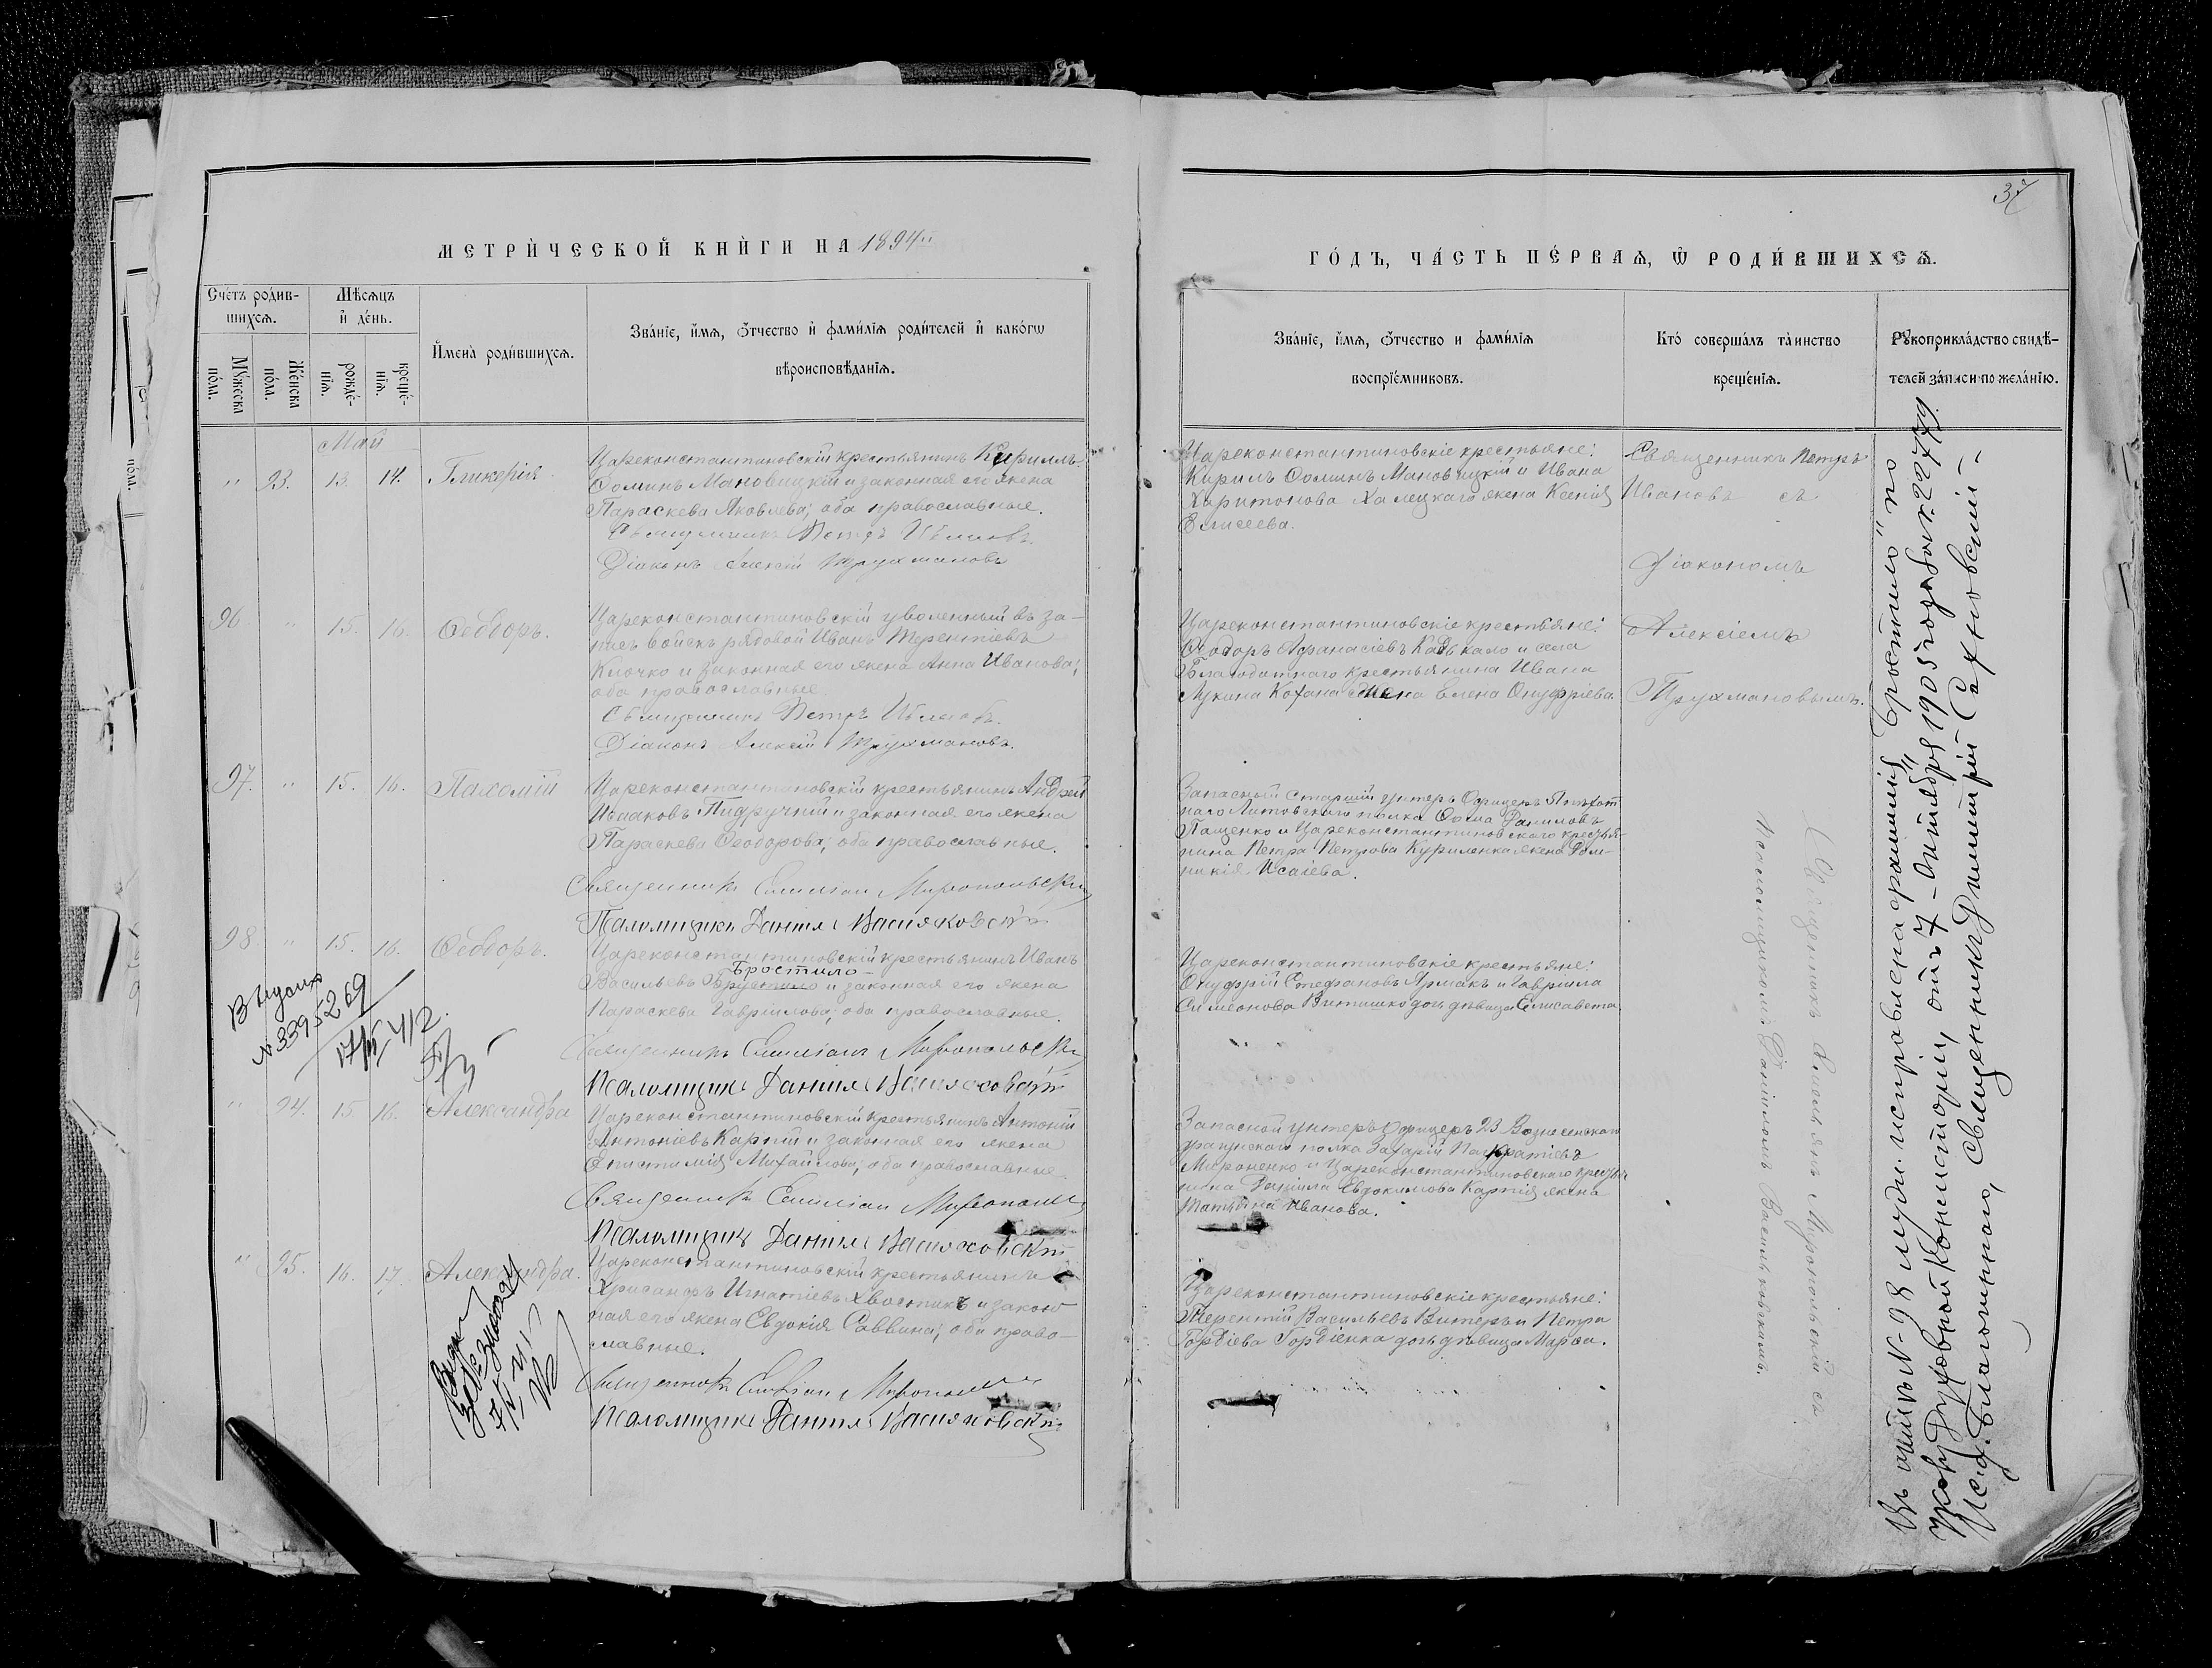 37
МЕТРИЧЕСКОЙ КНИГИ НА 1894й
ГОДЪ, ЧАСТЬ ПЕРВАЯ, Ѡ РОДИВШИХСЯ.
Счетъ родив-
шихся.
Мѣсяцъ
и день.
Мужеска
пола.
Женска
пола.
рожде-
нія.
креще-
нія.
Имена родившихся.
Званіе, имя, отчество и фамилія родителей и какогѡ
вѣроисповѣданія.
Званіе, имя, отчество и фамилія
воспріемниковъ.
Кто совершалъ таинство
крещенія.
Рукоприкладство свидѣ-
телей записи по желанію.
Май
" 23. 13. 14. Гликерія
Цареконстантиновскій крестьянинъ Кириллъ
Ѳоминъ Мановицкій и законная его жена
Параскева Яковлева; оба православные.
Священникъ Петръ Ивановъ.
Діаконъ Алексій Трухмановъ
Цареконстантиновскіе крестьяне:
Кирилъ Ѳоминъ Мановицкій и Ивана
Харитонова Халецкаго жена Ксенія
Елисеева.
Священникъ Петръ
Ивановъ съ
Діакономъ
Алексіемъ
Трухмановымъ.
96. " 15. 16. Ѳеодоръ.
Цареконстантиновскій уволенный въ за-
пасъ войскъ рядовой Иванъ Терентіевъ
Клочко и законная его жена Анна Иванова;
оба православные.
Священникъ Петръ Ивановъ.
Діаконъ Алексій Трухмановъ.
Цареконстантиновскіе крестьяне:
Ѳеодоръ Аѳанасіевъ Кадькало и села
Благодатнаго крестьянина Ивана
Лукина Кохана жена Елена Онуфріева.
97. " 15. 16. Пахомій
Цареконстантиновскій крестьянинъ Андрей
Исааковъ Пидручный и законная его жена
Параскева Ѳеодорова; оба православные.
Священникъ Емиліанъ Миропольскій
Псаломщикъ Даніилъ Васильковскій
Запасный старшій унтеръ Офицеръ
наго Литовскаго полка Ѳома Даниловъ
Пащенко и Цареконстантиновскаго крестья-
нина Петра Петрова Куриленка жена Дом-
никія Исаіева.
98 " 15. 16. Ѳеодоръ.
Цареконстантиновскій крестьянинъ Иванъ
Бростило
Васильевъ Брустило и законная его жена
Параскева Гавриилова; оба православные.
Священникъ Емиліанъ Миропольскій
Псаломщикъ Даніилъ Васильковскій
Цареконстантиновскіе крестьяне:
Онуфрій Стефановъ Ярмакъ и Гавриила
Симеонова Витишко дочь дѣвица Елисавета.
№ 3395269
" 24. 15 16. Александра
Цареконстантиновскій крестьянинъ Антоній
Антоніевъ Карпій и законная его жена
Епистимія Михайлова; оба православные
Священникъ Емиліанъ Миропольскій
Псаломщикъ Даніилъ Васильковскій
Запасной унтеръ Офицеръ 23 Вознесенскаго
драгунскаго полка Захарій Панкратіевъ
Мироненко и Цареконстантиновскаго крестья-
нина Даніила Евдокимова Карпія жена
Татьяна Иванова.
" 25. 16. 17. Александра.
Цареконстантиновскій крестьянинъ
Хрисанфъ Игнатіевъ Хвостикъ и закон-
ная его жена Евдокія Саввина; оба право-
славные.
Священникъ Емиліанъ Миропольскій
Псаломщикъ Даніилъ Васильковскій
Цареконстантиновскіе крестьяне:
Терентій Васильевъ Витеръ и Петра
Гордіева Гордіенка дочь дѣвица Марѳа.
Священникъ Емиліянъ Миропольскій съ
Псаломщикомъ Даніиломъ Васильковскимъ.
Въ статьѣ № 98 муж. исправлена фамилія „Бростило" по
указу Духовной Консисторіи, отъ 7 Октября 1905 года за № 22779.
Благочиннаго, Священникъ Димитрій Сахновскій